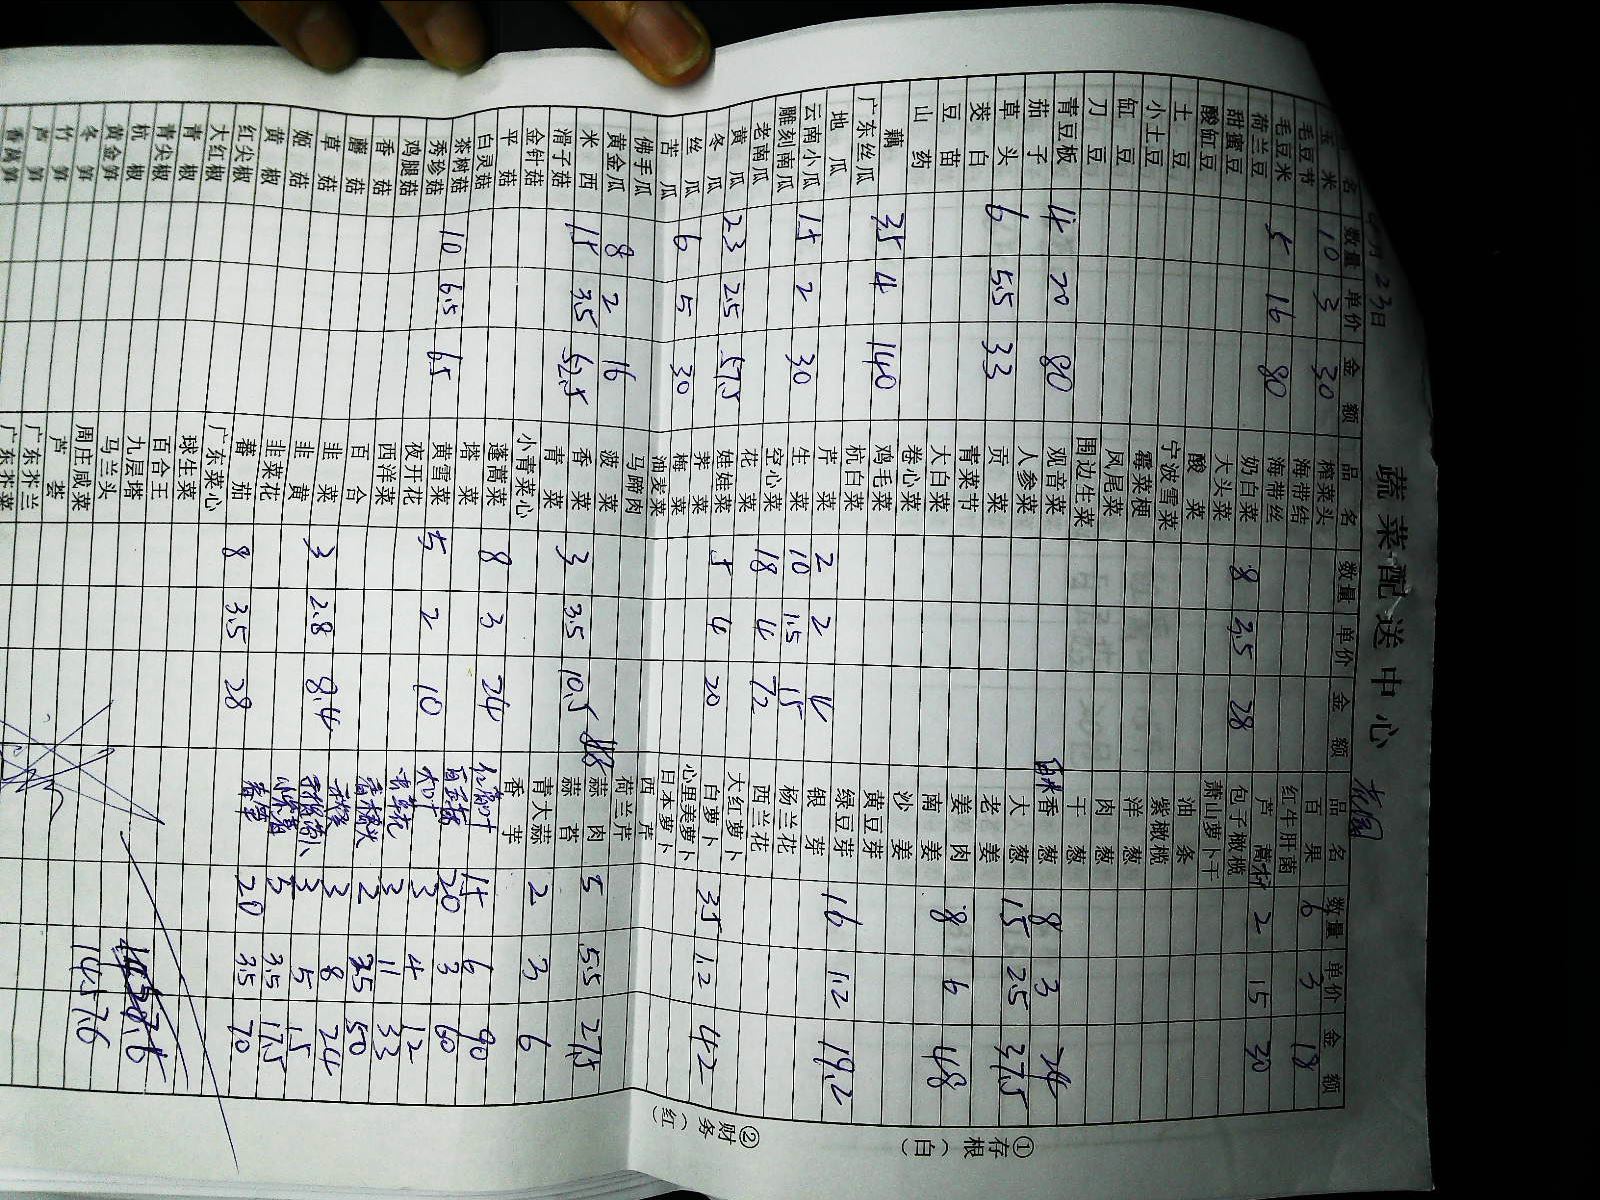 蔬菜配送中心
月23日
名 数量 单价 金额 品名 数量 单价 金额 品名 数量 单价 金额
玉米 10 3 30 榨菜头 百果 6 3 18
毛豆节 海带结 红牛肝菌
毛豆米 5 16 80 海带丝 芦蒿 2 15 30
荷兰豆 奶白菜 8 3.5 28 包子橄榄
甜蜜豆 大头菜 萧山萝卜干
酸缸豆 酸菜 油条
土豆 宁波雪菜 紫橄榄
小土豆 霉菜梗 洋葱
缸豆 凤尾菜 肉葱
刀豆 围边生菜 干葱
青豆板 4 20 80 观音菜 香葱 8 3 24
茄子 人参菜 大葱 15 2.5 37.5
草头 6 5.5 33 贡菜 老姜
茭白 青菜节 姜肉
豆苗 大白菜 南姜 8 6 48
山药 卷心菜 沙姜
藕 35 4 140 鸡毛菜 黄豆芽
广东丝瓜 杭白菜 绿豆芽 16 1.2 19.2
地瓜 芹菜 2 2 4 银芽
云南小瓜 15 2 30 生菜 10 1.5 15 杨兰花
雕刻南瓜 空心菜 18 4 72 西兰花
老南瓜 花菜 大红萝卜
黄瓜 23 2.5 57.5 娃娃菜 5 4 20 白萝卜 35 1.2 42
冬瓜 荠菜 心里美萝卜
丝瓜 6 5 30 梅菜 日本萝卜
苦瓜 油麦菜 西芹
佛手瓜 马蹄肉 荷兰芹
黄金瓜 8 2 16 菠菜 蒜肉 5 5.5 27.5
米西 15 3.5 52.5 香菜 3 3.5 10.5 蒜苔
滑子菇 青菜 青大蒜 2 3 6
金针菇 小青菜心 香芋
平菇 蓬蒿菜 8 3 24 15 6 90
白灵菇 塔菜 20 3 60
茶树菇 黄雪菜 大叶 3 4 12
秀珍菇 10 6.5 65 夜开花 5 2 10 3 11 33
鸡腿菇 西洋菜 2 25 50
香菇 百合 3 8 24
蘑菇 韭菜 3 2.8 8.4 3 5 15
草菇 韭黄 5 3.5 17.5
姬菇 韭菜花 20 3.5 70
黄椒 蕃茄 8 3.5 28
红尖椒 广东菜心
大红椒 球生菜
青椒 百合王
青尖椒 九层塔
杭椒 马兰头
黄金笋 周庄咸菜 1457.6
冬笋 芦荟
竹笋 广东芥兰
芦笋 广东芥菜
香莴笋
①存根（白）
②财务（红）